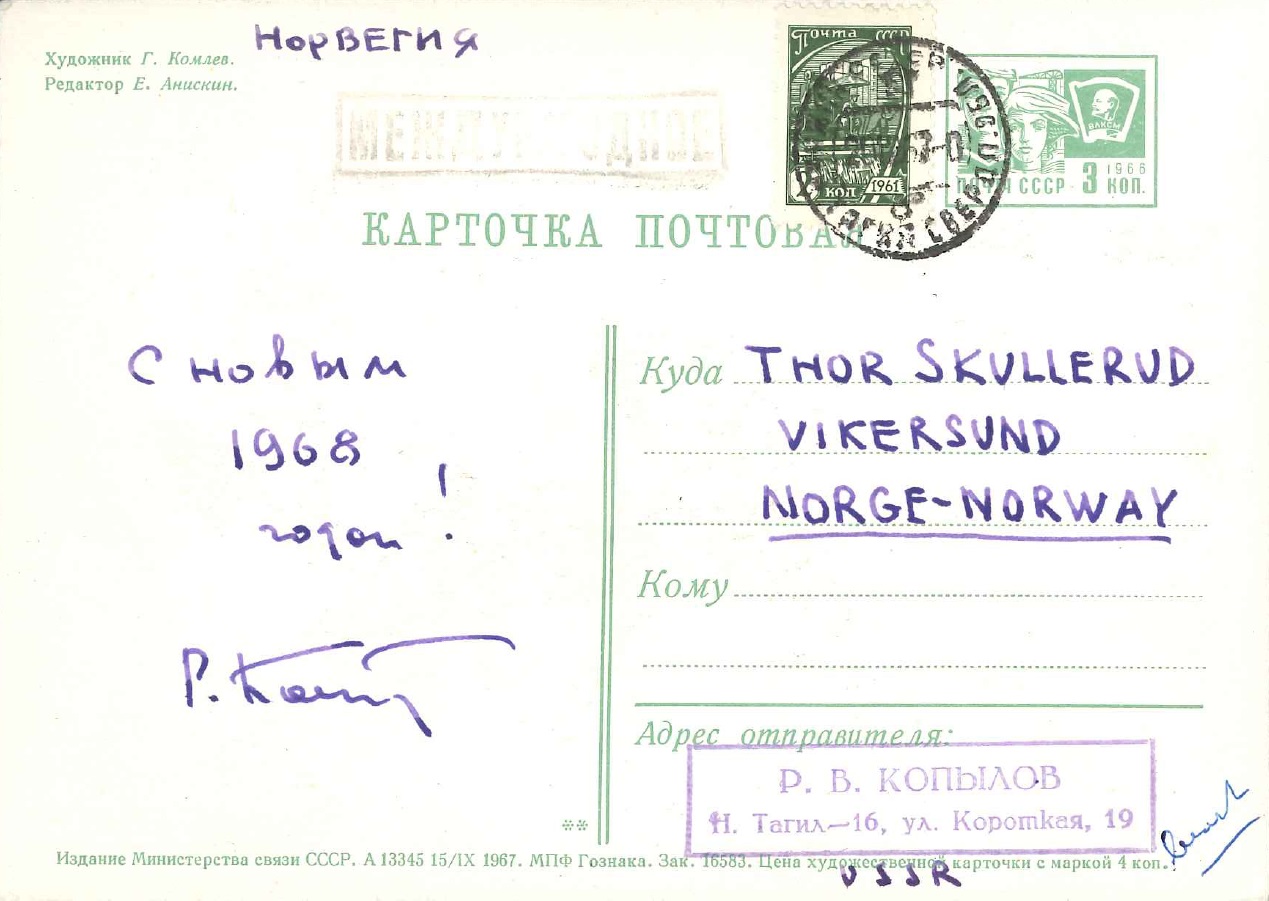 Художник Г. Комлев.
Редактор Е. Анискин.
НОРВЕГИЯ
МЕЖДУНАРОДНОЕ
Почта СССР
КОП 1961
ВЛКСМ
1966
ПОЧТА СССР 3 КОП.
КАРТОЧКА ПОЧТОВАЯ
С новым
1968
годом!
Куда THOR SKULLERUD
VIKERSUND
NORGE-NORWAY
Кому
Адрес отправителя:
Р. В. КОПЫЛОВ
Н. Тагил—16, ул. Короткая, 19
USSR
**
Издание Министерства связи СССР. А 13345 15/IX 1967. МПФ Гознака. Зак. 16583. Цена художественной карточки с маркой 4 коп.